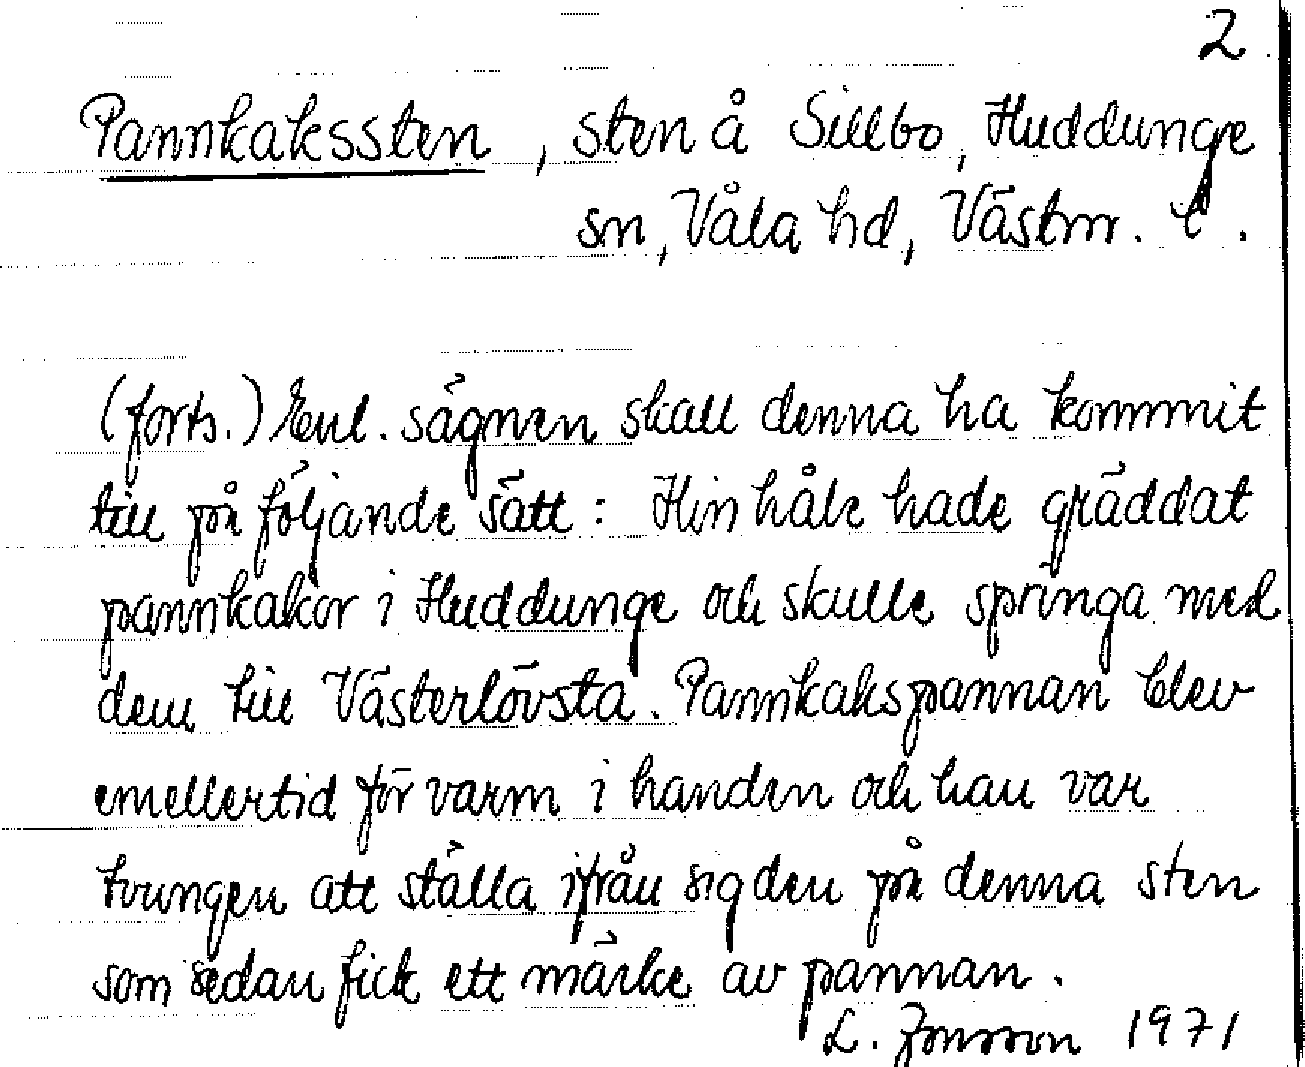 2
Pannkakssten, sten å Sillbo, Huddunge
sn, Våla hd, Västm. l.
(forts.) Enl. sägnen skall denna ha kommit
till på följande sätt: Hin håle hade gräddat
pannkakor i Huddunge och skulle springa med
dem till Västerlövsta. Pannkakspannan blev
emellertid för varm i handen och han var
tvungen att ställa ifrån sig den på denna sten
som sedan fick ett märke av pannan.
L. Jonsson 1971